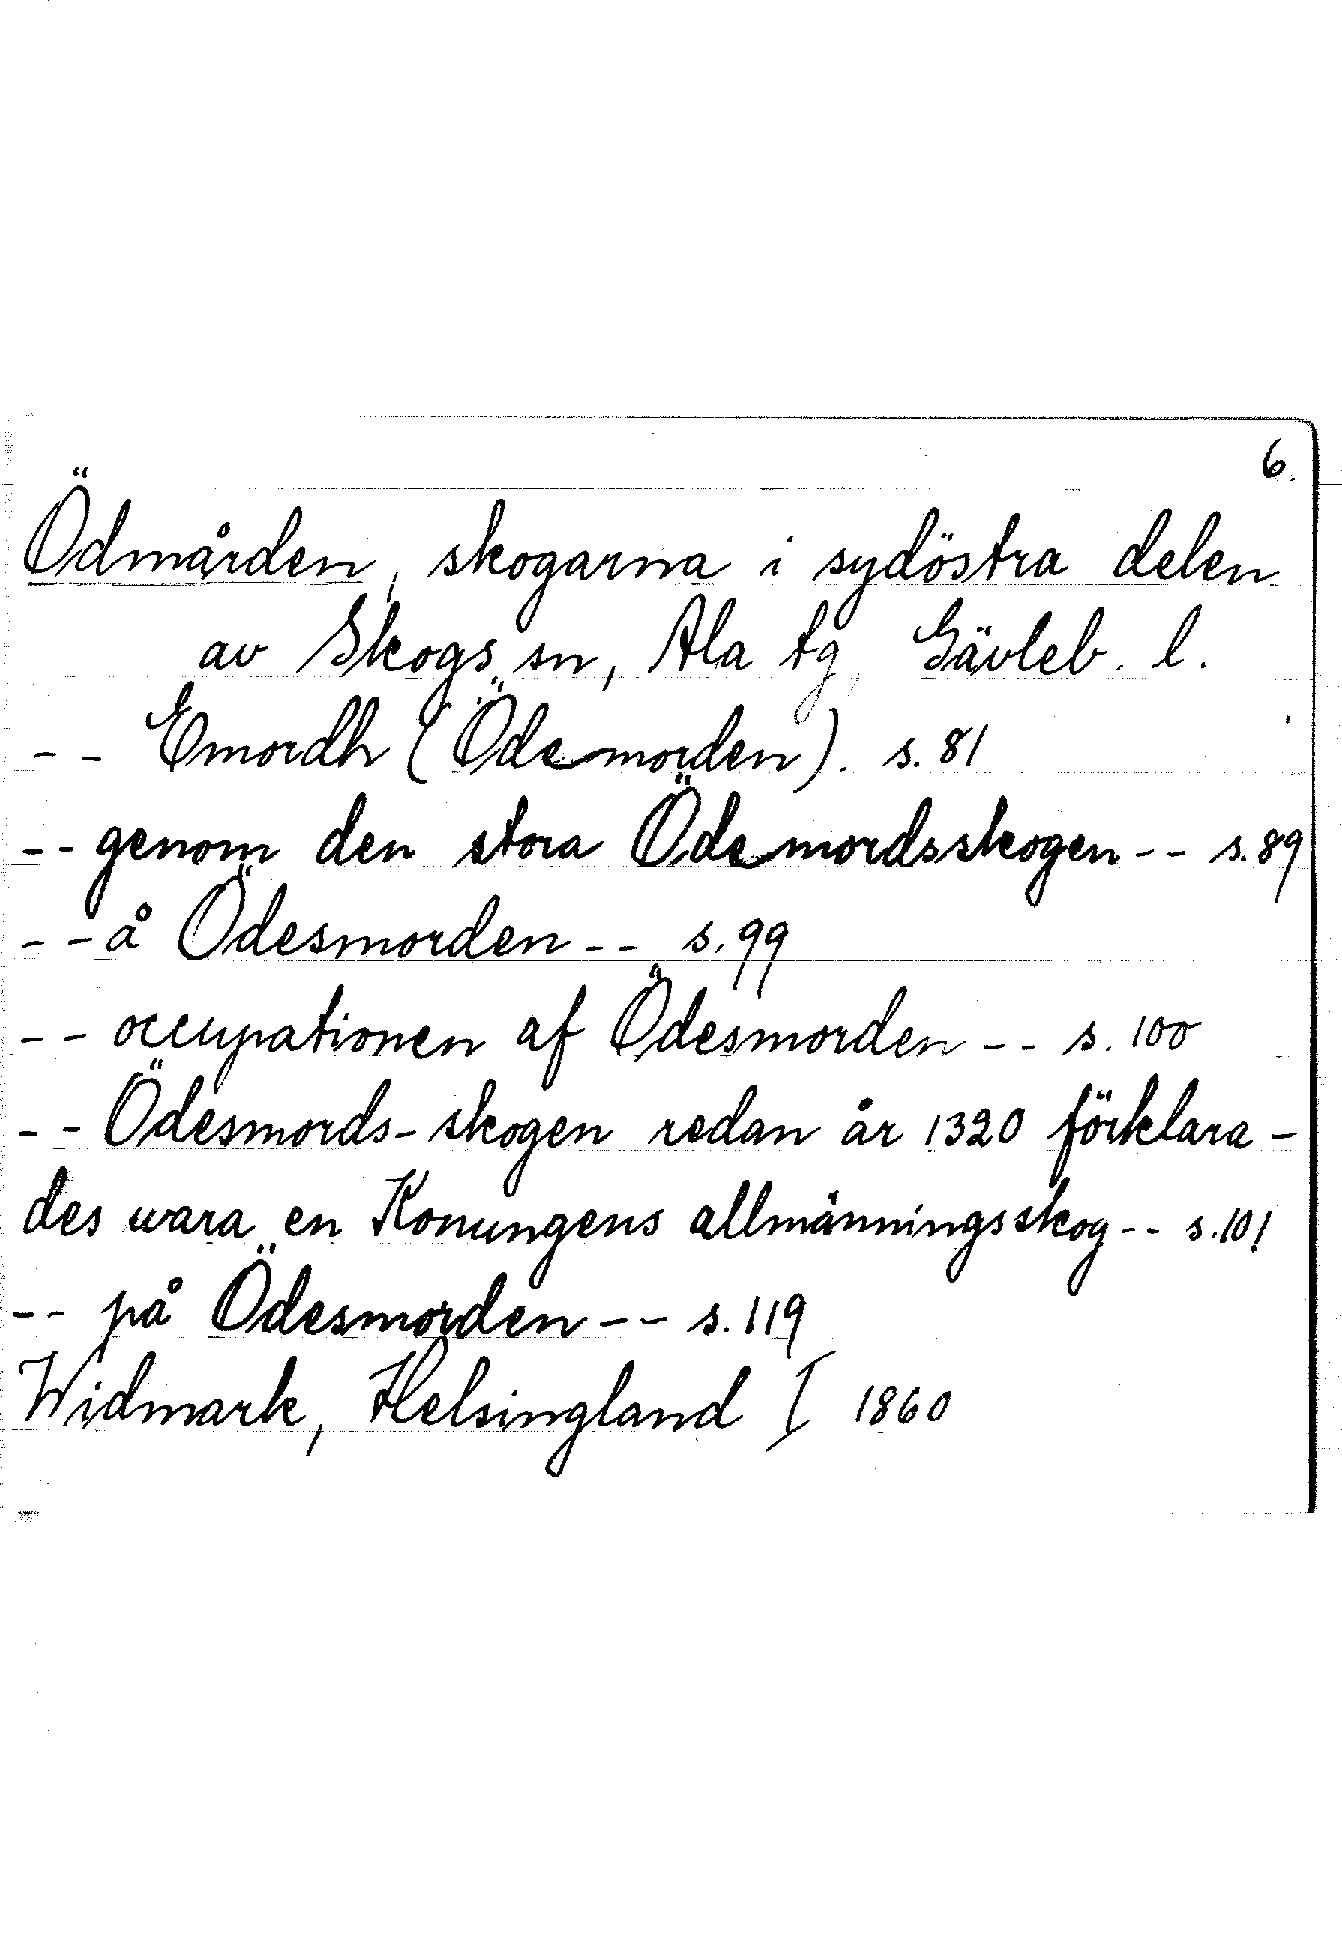 6.
Ödmården, skogarna i sydöstra delen
av Skogs sn, Ala tg, Gävleb. l.
-- Emordh (Ödemorden). s. 81
-- genom den stora Ödemordsskogen -- s. 89
-- å Ödesmorden -- s. 99
-- occupationen af Ödesmorden -- s. 100
-- Ödesmords-skogen redan år 1320 förklara-
des wara en Konungens allmänningsskog -- s. 101
-- på Ödesmorden -- s. 119
Widmark, Helsingland I 1860